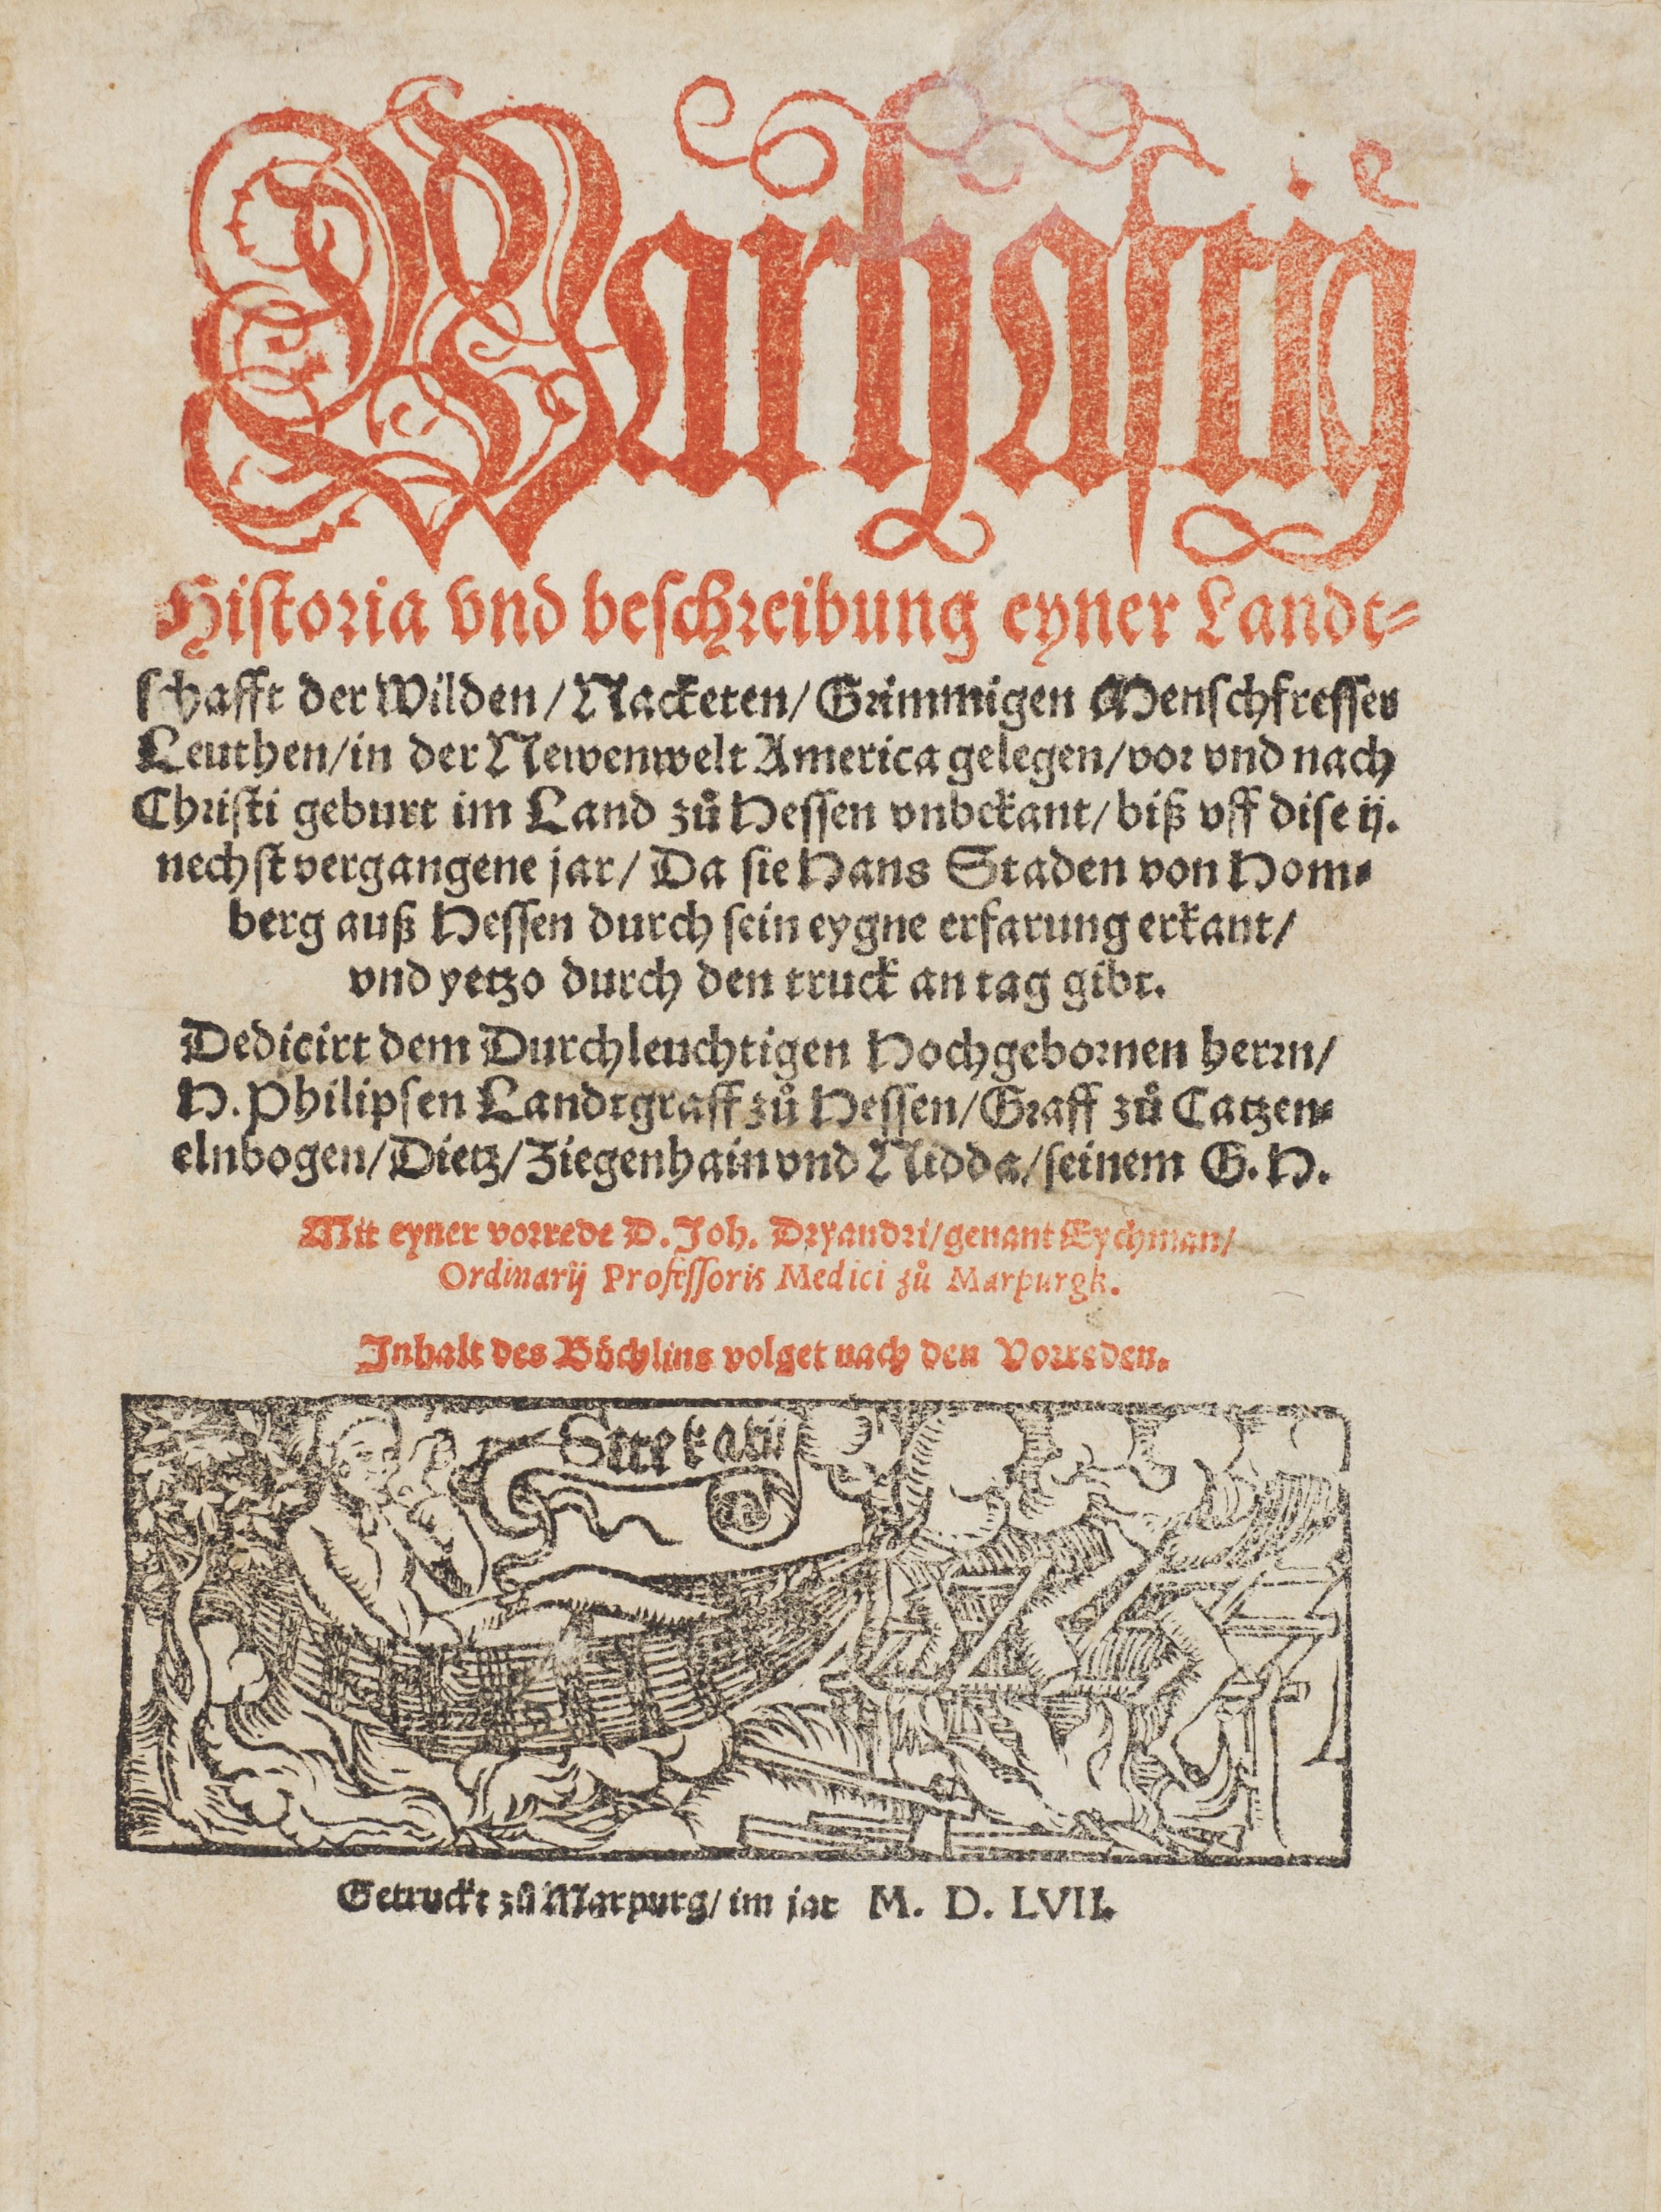 Warhaftige
Historia vnd beschreibung eyner Landt-
schafft der Wilden/Nacketen/Grimmigen Menschfresser
Leuthen/in der Newenwelt America gelegen/vor vnd nach
Christi geburt im Land zů Hessen vnbekant/biß vff dise ij.
nechst vergangene jar/Da sie Hans Staden von Hom-
berg auß Hessen durch sein eygne erfarung erkant/
vnd yetzo durch den truck an tag gibt.
Dedicirt dem Durchleuchtigen Hochgebornen herrn/
H. Philipsen Landtgraff zů Hessen/Graff zů Catzen-
elnbogen/Dietz/Ziegenhain vnd Nidda/seinem G.H.
Mit eyner vorrede D. Joh. Dryandri/genant Eychman/
Ordinarij Professoris Medici zů Marpurgk.
Inhalt des Bůchlins volget nach den Vorreden.
Getruckt zů Marpurg/im jar M. D. LVII.